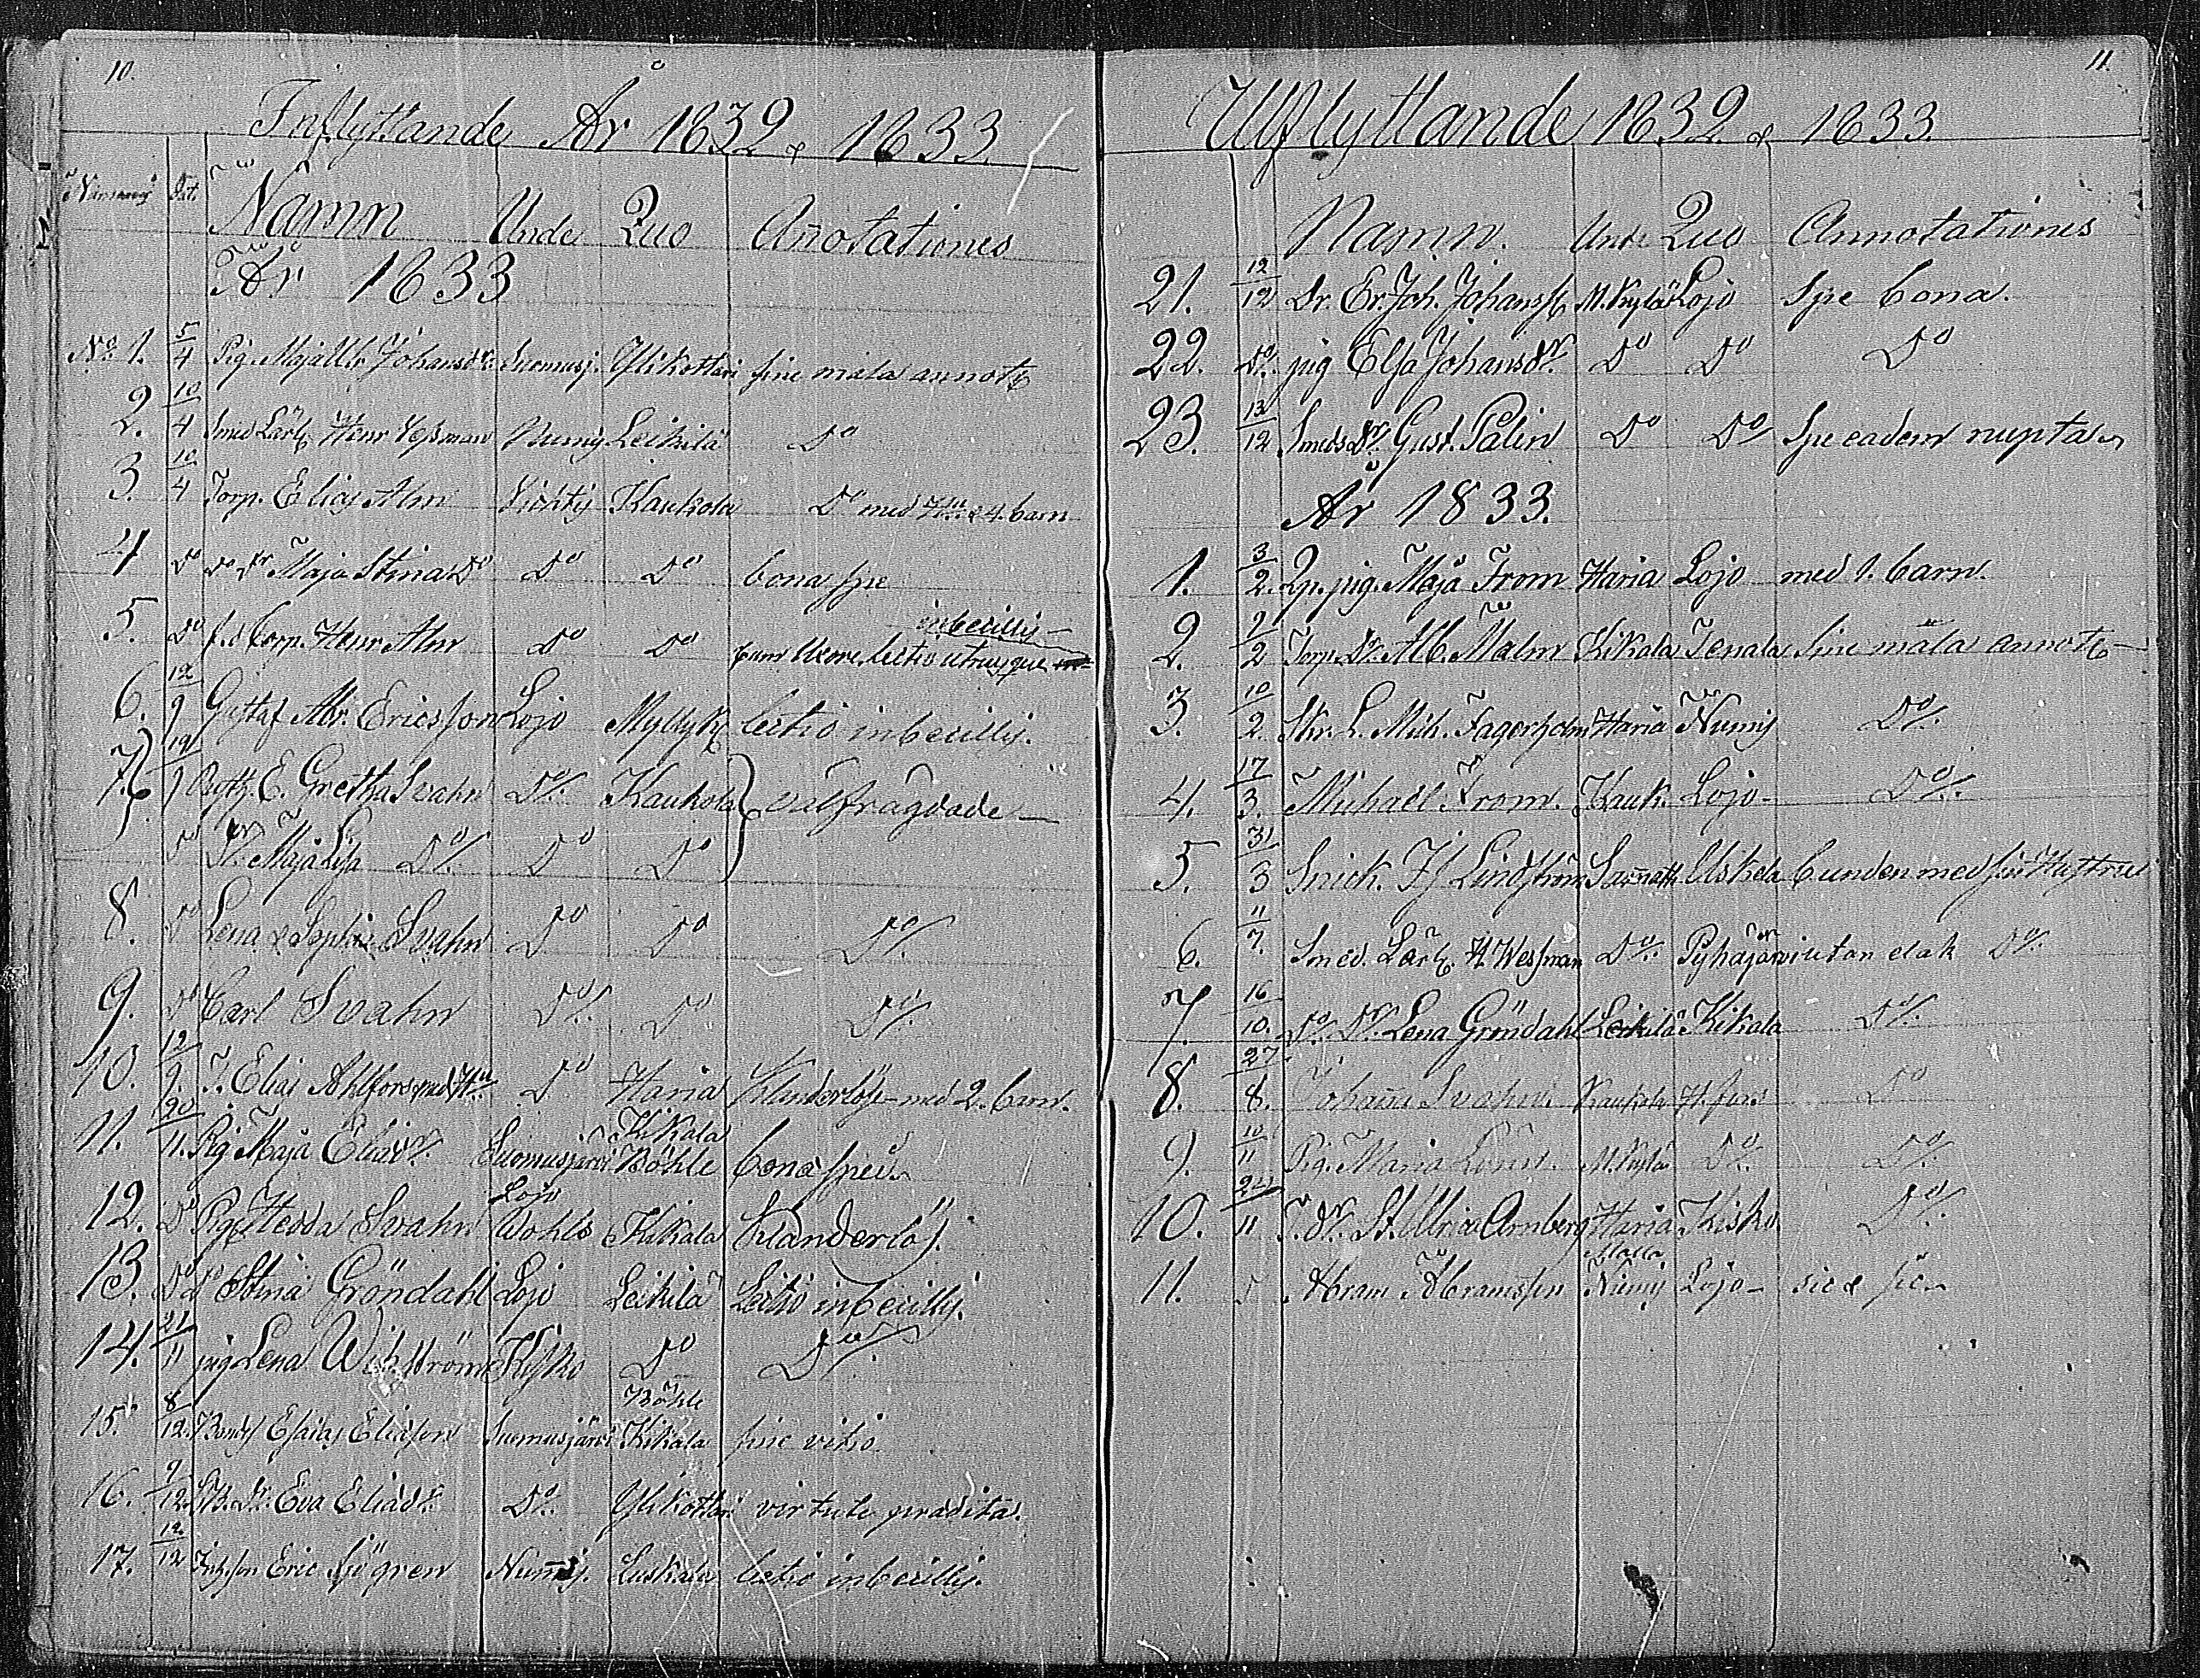 10.
Inflyttande År 1832 & 1833.
Dat. Namn Unde Quo Annotationes
År 1833
No 1. 5/4 Pig. Maja Ulr. Johansdr. Suomusj. Ylikottari sine mala annot
2. 10/4 Smed Lärl. Henr Vesman Numis Leikilä Do
3. 10/4 Torp. Elias Alm Vichtis Kaukola Do med Hu. & 4. barn
4 Do Do Dr Maja Stina Do Do Do bona spe
5. Do f.d Corp. Henr Alm Do Do cum uxore, lectio utriusque imbecillis
6. 12/9 Gustaf Abr. Ericsson Lojo Myllyk. lectio imbecillis.
7. 19/9 E. Gretha Svahn Do Kaukola
Do Dr. Maja Lisa Do Do Do
8. Do Lena & Sophia Svahn Do Do Do
9. Do Carl Svahn Do. Do Do
10. 12/9. T. Elias Ahlfors med Hu. Do Haria Klanderlös med 2. barn.
11. 20/11. Pig Maja Eliædr. Suomusjärvi Kikala Böhle bona spei
12. Do Pig Hedda Svahn Lojo Wohls Kikala klanderlös.
13. Do Do Stina Gröndahl Lojo Leikilä Lectio imbecillis.
14. 21/11 pig Lena Wikström Kisko Do Do
15. 8/12. Bonds. Esaias Eliasson Suomusjärvi Böhle Kikala sine vitio.
16. 9/12. B. Dr. Eva Eliædr. Do. Ylikottari virtute prædita.
17. 12/12 Eric Sjögren Numis. Luskala lectio imbecillis.
11.
Utflyttande 1832. & 1833.
Namn. Unde Quo Annotationes
21. 12/12 Dr. Er. Joh. Johanss. M. Kylä Lojo Spe bona.
22. Do. pig Elsa Johansdr. Do Do Do
23. 13/12 Smeds Dr. Gust. Palin Do Do Spe eadem nupta
År 1833.
1. 3/2. Qp. pig. Maja From Haria Lojo med 1. barn.
2. 9/2 Torp. Dr. Alb. Malm Kikala Tenala Sine mala annot
3. 10/2. Skr. L. Mich. Fagerholm Haria Numis Do.
4. 17/3. Michael From. Kauk. Lojo Do.
5. 31/3 Snick. Lindström Uskela bunden med sin Hustru
6. 11/7. Smed. Lärl. H. Wesman Do. Pyhäjärvi utan elak Do.
7. 16/10. Do. Dr. Lena Gröndahl Leikilä Kikala Do.
8. 27/8. Johann Svahn. Kaukola H.fors Do
9. 10/11 Pig. Maria Lönn. M. Kylä Do. Do.
10. 24/11 T. Dr. St. Ulrica Arnberg Haria Kisko Do.
11. Abram Abramsson Numis Lojo sic & sic